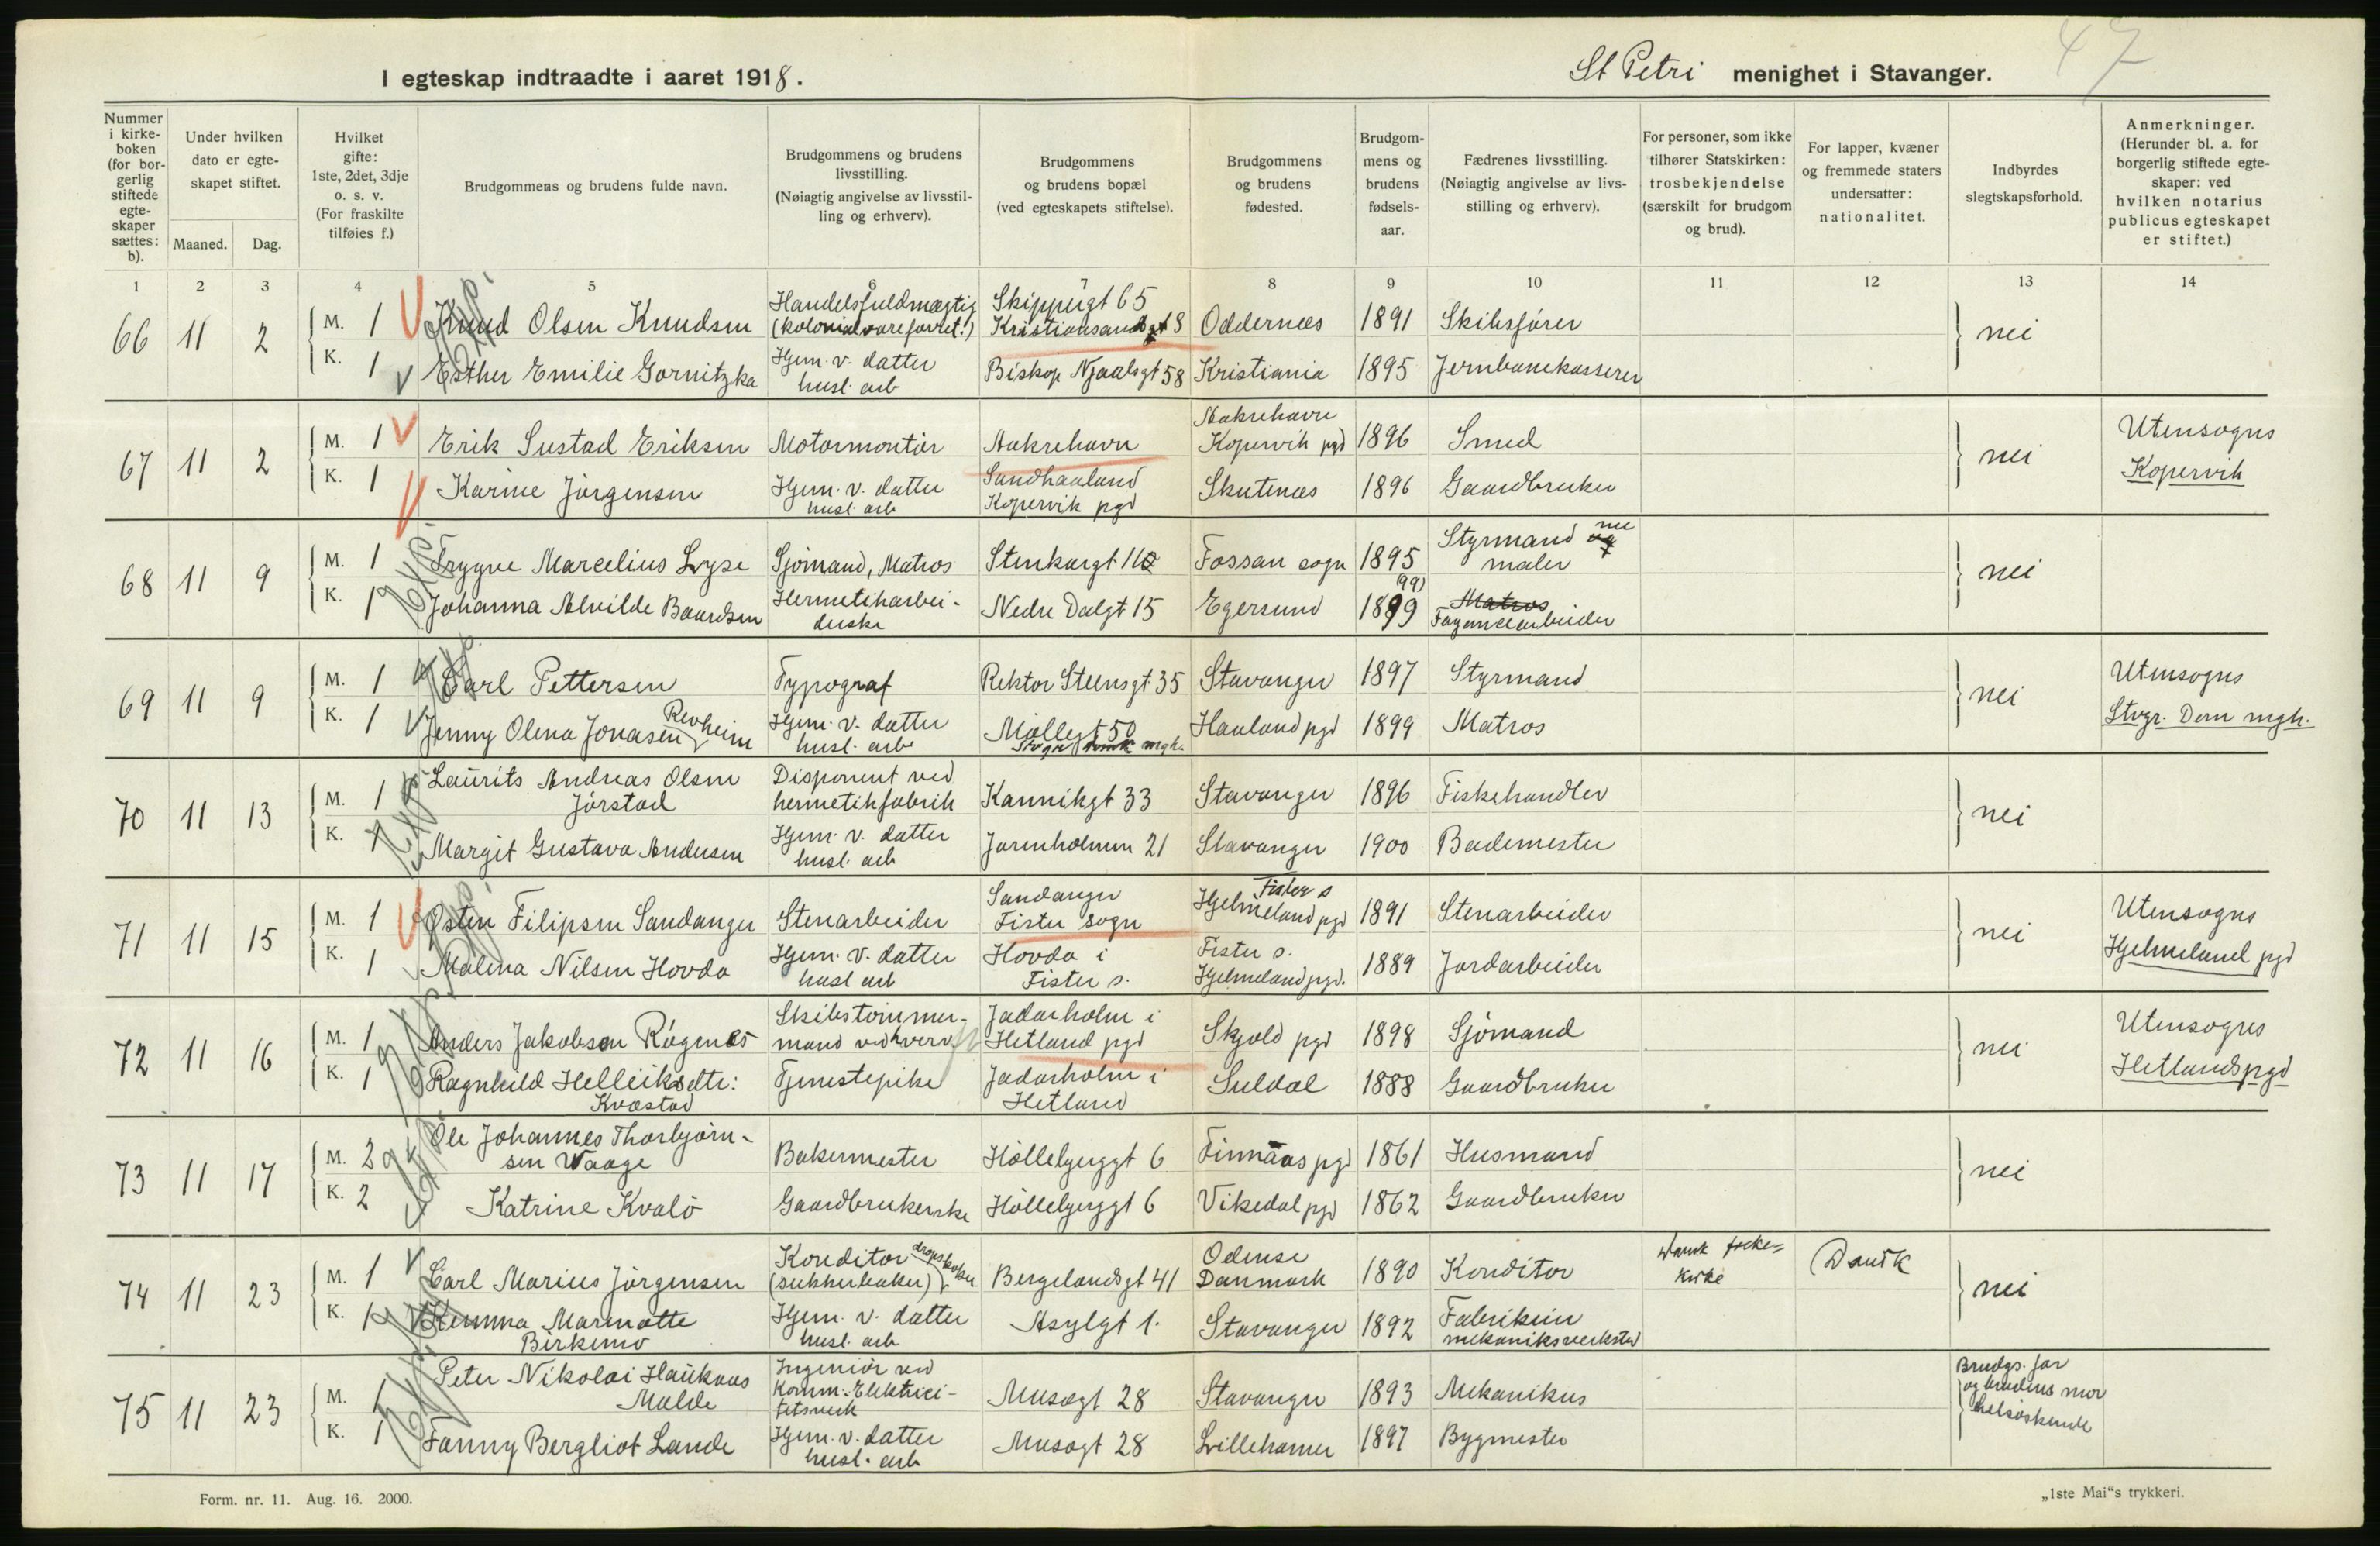 47
I egteskap indtraadte i aaret 1918.
St Petri menighet i Stavanger.
Nummer i kirkeboken (for borgerlig stiftede egteskaper sættes: b).
Under hvilken dato er egteskapet stiftet.
Maaned. Dag.
Hvilket gifte: 1ste, 2det, 3dje o. s. v. (For fraskilte tilføies f.)
Brudgommens og brudens fulde navn.
Brudgommens og brudens livsstilling. (Nøiagtig angivelse av livsstilling og erhverv).
Brudgommens og brudens bopæl (ved egteskapets stiftelse).
Brudgommens og brudens fødested.
Brudgommens og brudens fødselsaar.
Fædrenes livsstilling. (Nøiagtig angivelse av livsstilling og erhverv).
For personer, som ikke tilhører Statskirken: trosbekjendelse (særskilt for brudgom og brud).
For lapper, kvæner og fremmede staters undersatter: nationalitet.
Indbyrdes slegtskapsforhold.
Anmerkninger. (Herunder bl. a. for borgerlig stiftede egteskaper: ved hvilken notarius publicus egteskapet er stiftet.)
1 2 3 4 5 6 7 8 9 10 11 12 13 14
66 11 2 M. 1 Knud Olsen Knudsen Handelsfuldmægtig (kolonialvareforret.) Skippergt 65 Kristiansand Oddernes 1891 Skibsfører nei
K. 1 Esther Emilie Gornitzka Hjem. v. datter husl. arb Biskop Njaalsgt 58 Kristiania 1895 Jernbanekasserer
67 11 2 M. 1 Erik Sustad Eriksen Motormontør Aakrehavn Aakrehavn Kopervik pgd 1896 Smed nei Utensogns Kopervik
K. 1 Karine Jörgensen Hjem. v. datter husl. arb Sandhaaland Kopervik pgd Skutenes 1896 Gaardbruker
68 11 9 M. 1 Trygve Marcelius Lyse Sjömand, Matros Stenkargt 110 Fossan sogn 1895 Styrmand nu maler nei
K. 1 Johanna Alvilde Baardsen Hermetikarbeiderske Nedre Dalgt 15 Egersund 1899 (99) Matros Fayancearbeider
69 11 9 M. 1 Carl Pettersen Typograf Rektor Steensgt 35 Stavanger 1897 Styrmand nei Utensogns Stvgr. Dom mgh.
K. 1 Jenny Olena Jonasen Revheim Hjem. v. datter husl. arb Møllegt 50 Stvgr Domk mgh. Haaland pgd 1899 Matros
70 11 13 M. 1 Laurits Andreas Olsen Jörstad Disponent ved hermetikfabrik Kannikgt 33 Stavanger 1896 Fiskehandler nei
K. 1 Margit Gustava Andersen Hjem. v. datter husl. arb Jorenholmen 21 Stavanger 1900 Bademester
71 11 15 M. 1 Østen Filipsen Sandanger Stenarbeider Sandanger Fister sogn Fister s Hjelmeland pgd 1891 Stenarbeider nei Utensogns Hjelmeland pgd
K. 1 Malena Nilsen Hovda Hjem. v. datter husl arb Hovda i Fister s. Fister s. Hjelmeland pgd. 1889 Jordarbeider
72 11 16 M. 1 Anders Jakobsen Rógenes Skibstömmermand Jadarholm i Hetland pgd Skjold pgd 1898 Sjömand nei Utensogns Hetlandspgd
K. 1 Ragnhild Helleiksdtr: Kvæstad Tjenestepike Jadarholm i Hetland Suldal 1888 Gaardbruker
73 11 17 M. 2 Ole Johannes Thorbjörnsen Waage Bakermester Hóllebyggt 6 Finnaas pgd 1861 Husmand nei
K. 2 Katrine Kvaló Gaardbrukerske Hóllebyggt 6 Vikedal pgd 1862 Gaardbruker
74 11 23 M. 1 Carl Marius Jörgensen Konditor (sukkerbaker) dropskoker Bergelandsgt 41 Odense Danmark 1890 Konditor Dansk folkekirke Dansk nei
K. 1 Marinatte Birkemo Hjem. v. datter husl. arb Asylgt 1. Stavanger 1892 Fabrikeier mekaniksverksted
75 11 23 M. 1 Peter Nikolai Haukaas Malde Ingeniör ved Komm. Elektricitetsverk Musægt 28 Stavanger 1893 Mekanikus Brudgs. far og brudens mor helsøskende
K. 1 Fanny Bergliot Lande Hjem. v. datter husl. arb Musægt 28 Lillehamer 1897 Bygmester
Form. nr. 11. Aug. 16. 2000.
„1ste Mai“s trykkeri.